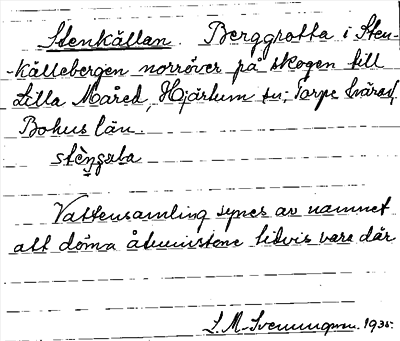 Stenkällan. Berggrotta i Sten-
-källebergen norröver på skogen till
Lilla Måred, Hjärtum sn; Torpe härad,
Bohus län.

Vattensamling synes av namnet
att döma åtminstone tidvis vara där
S. M. Svenungson. 1935.